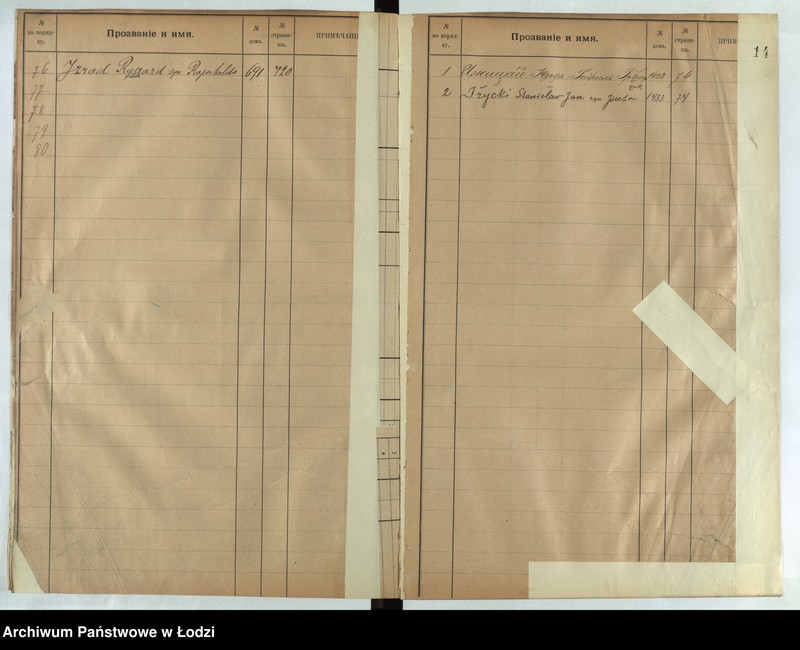 №
по поряд-
ку.
Прозваніе и имя.
№
дома.
№
страни-
цы.
ПРИМѢЧАНІ
76 Izrad Ryszard syn Rajnholda 691 720
77
78
79
80
№
по поряд-
ку.
Прозваніе и имя.
№
дома.
№
страни-
цы.
ПРИМ
14
1 1433 74
2 Iżycki Stanisław Jan syn Józefa 1433 74
Archiwum Państwowe w Łodzi